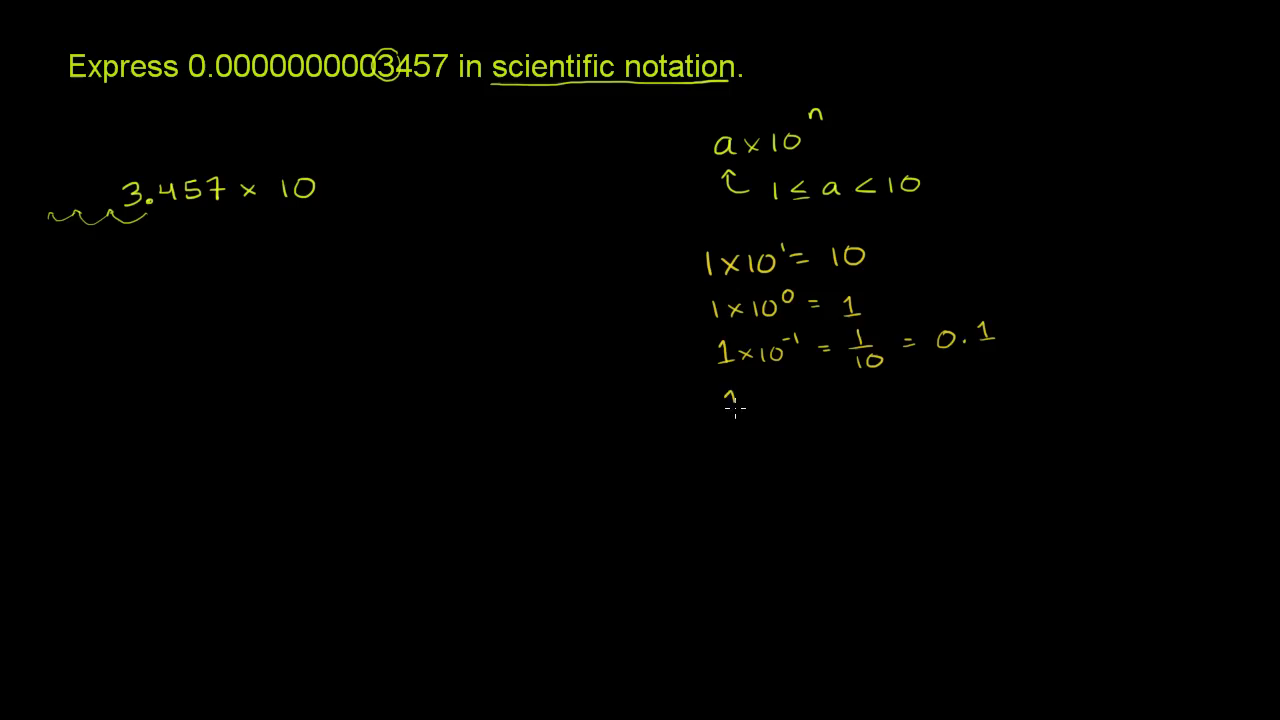 Express 0.0000000003457 in scientific notation.
3.457 × 10
a × 10ⁿ
1 ≤ a < 10
1 × 10¹ = 10
1 × 10⁰ = 1
1 × 10⁻¹ = 1/10 = 0.1